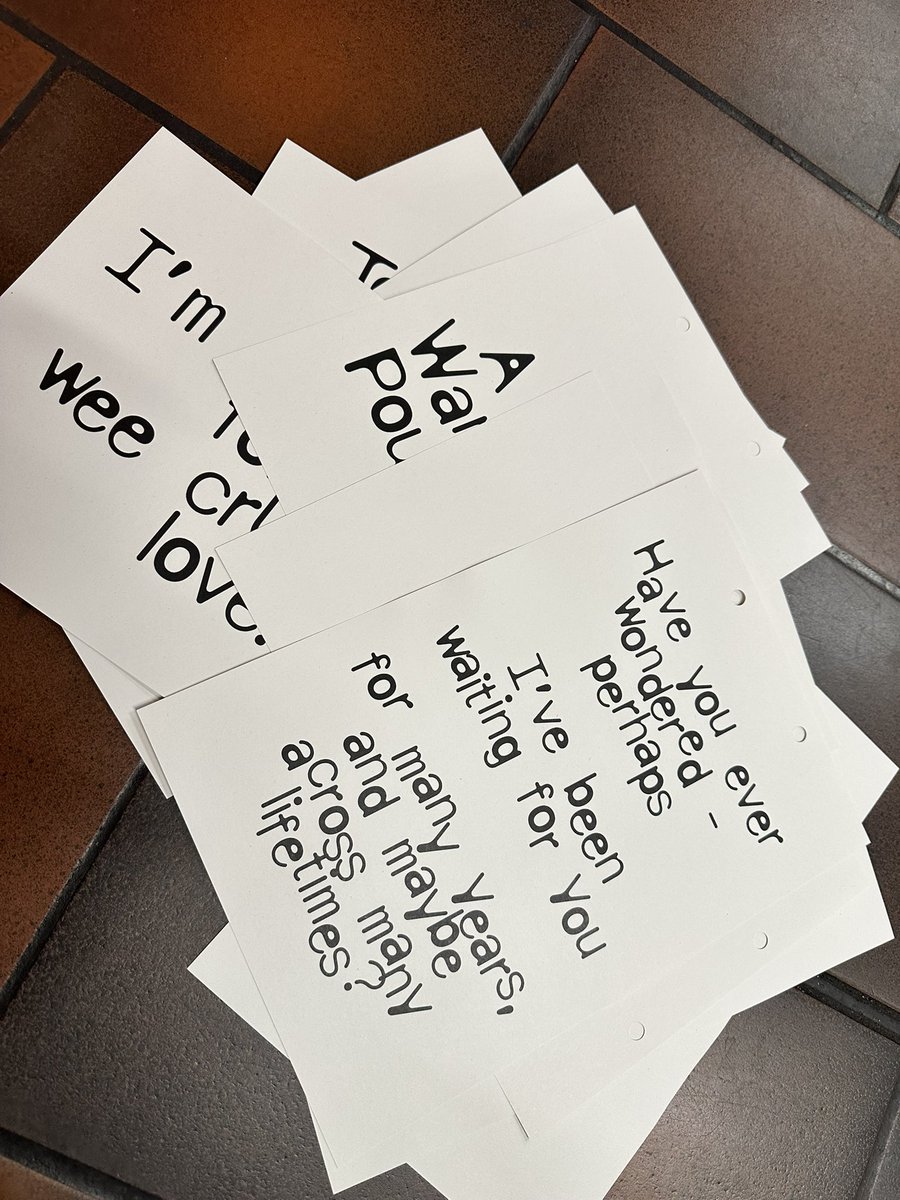 I'm
wee
love.
A
Have you ever
wondered –
perhaps
I've been
waiting for you
for many years,
and maybe
across many
lifetimes?